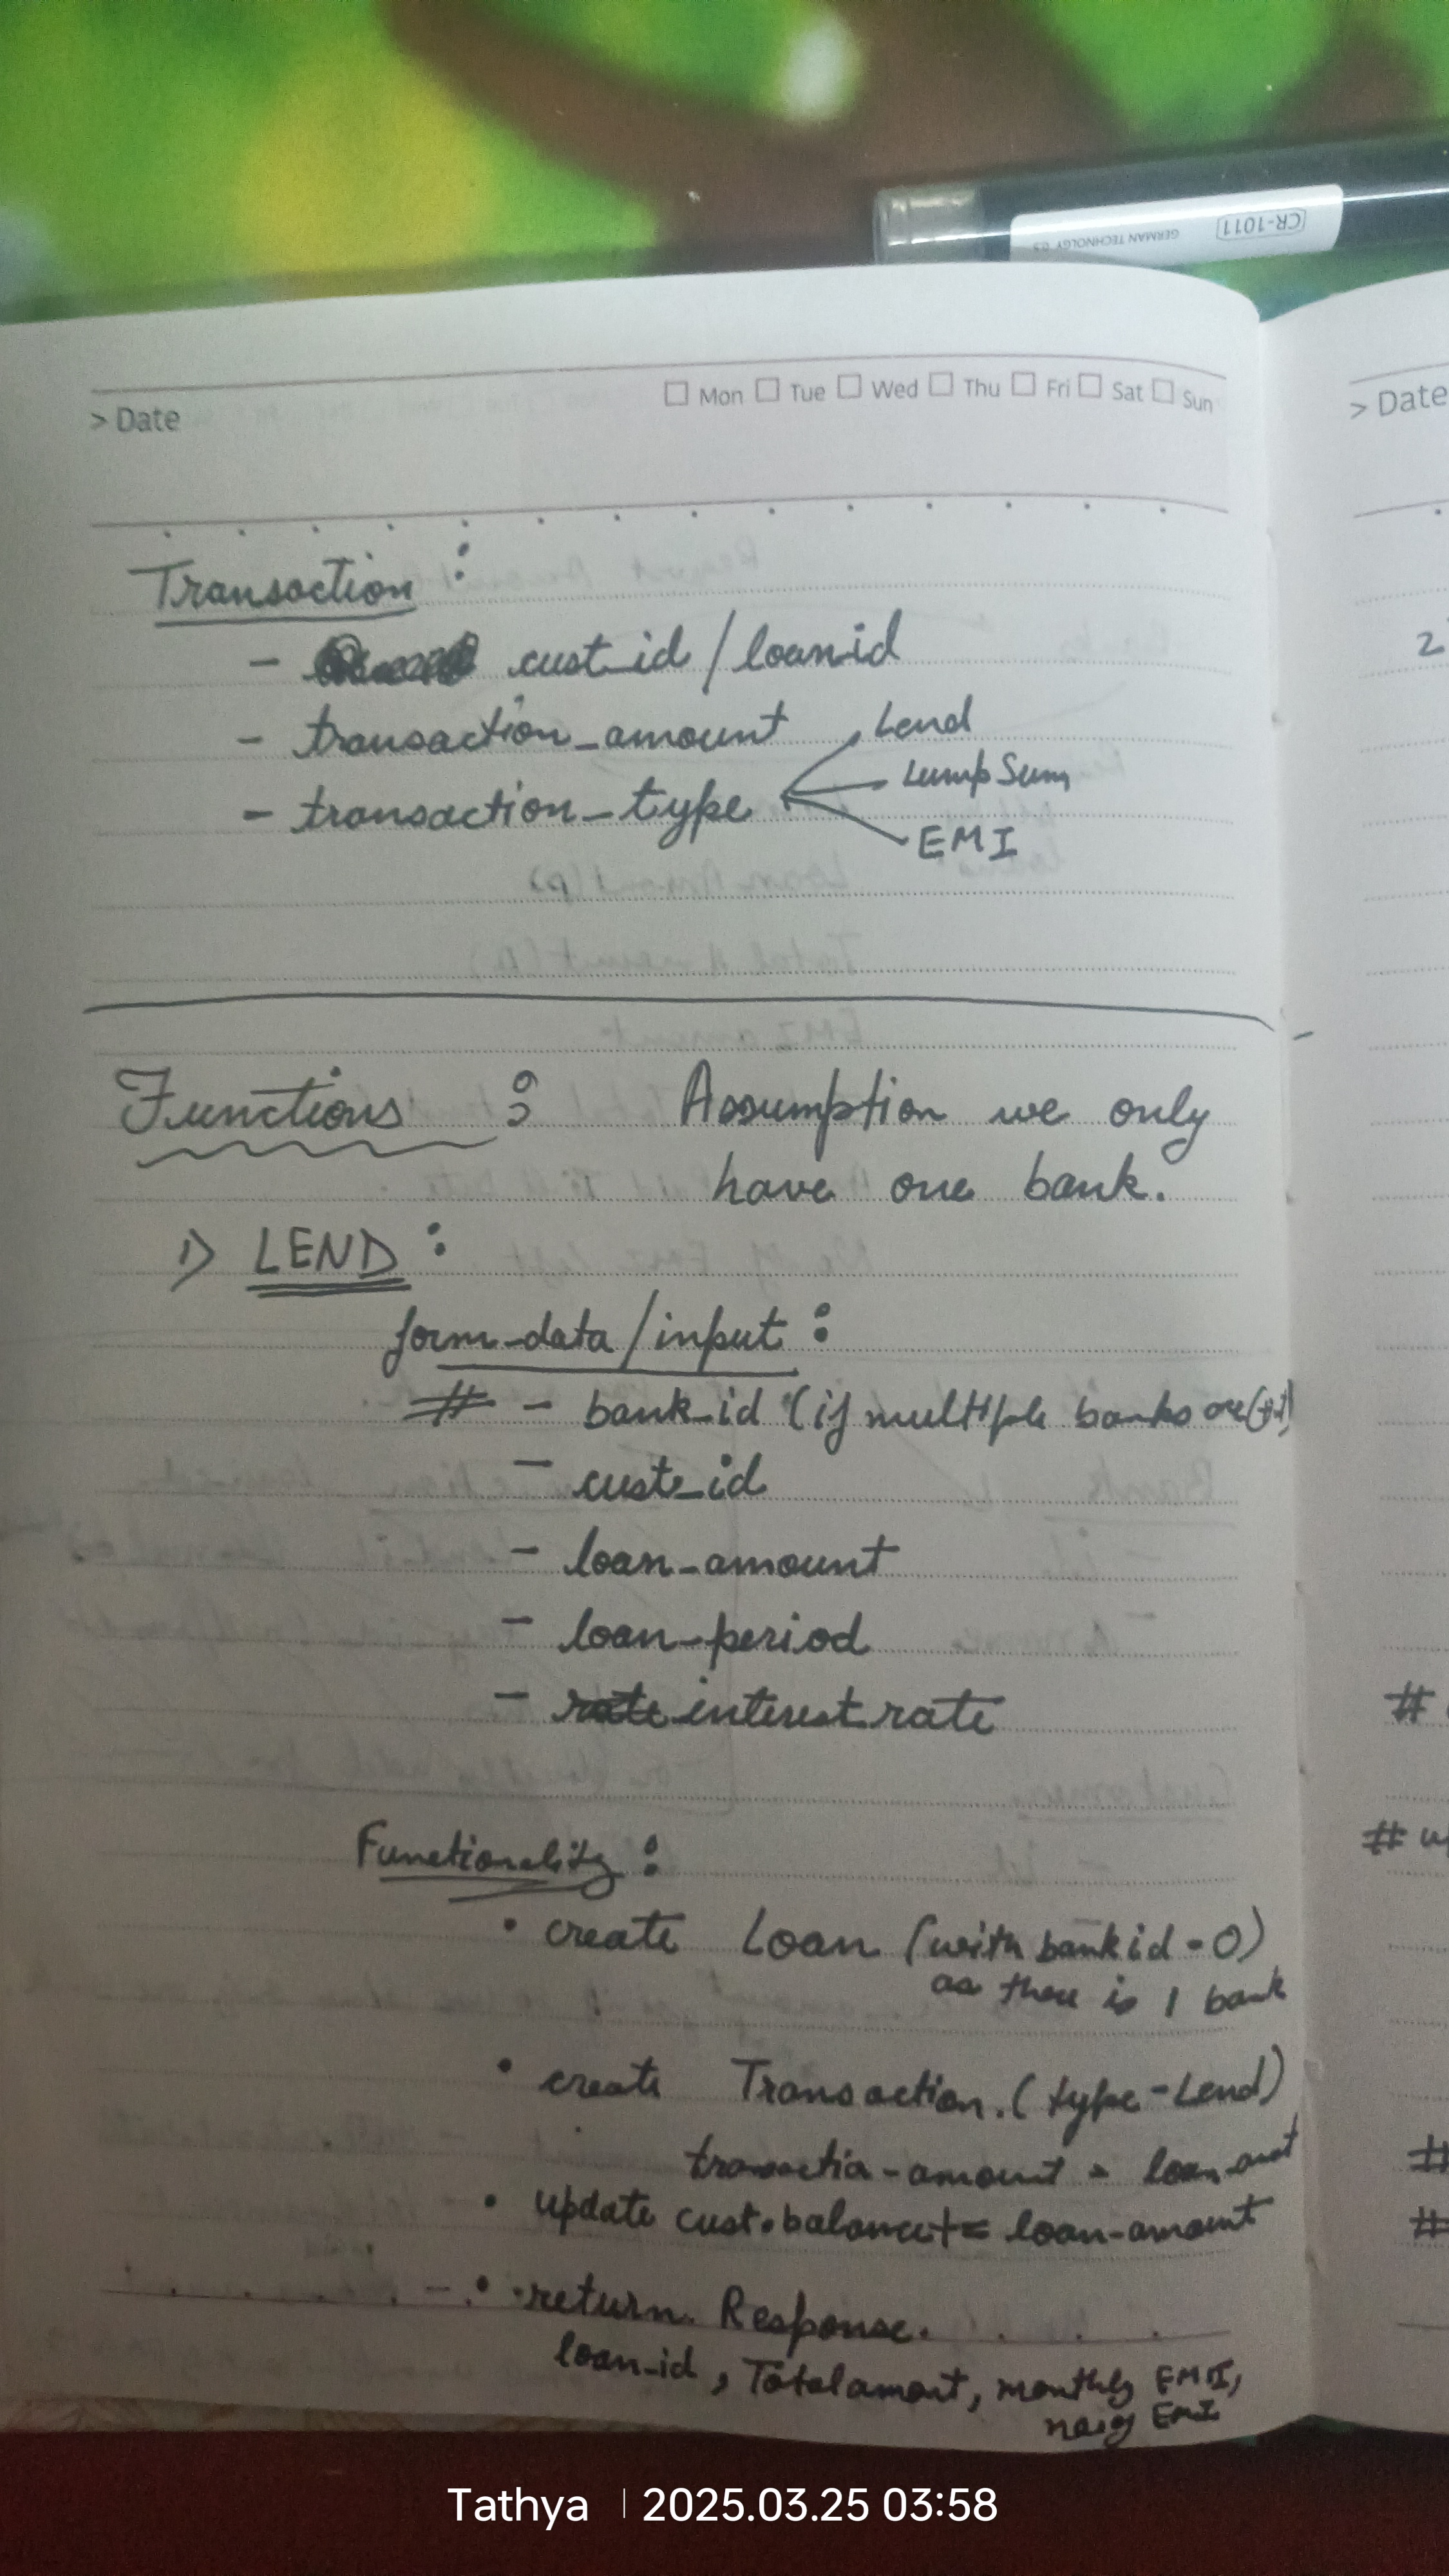 CR-1011
GERMAN TECHNOLGY 0.5
> Date
Mon Tue Wed Thu Fri Sat Sun
> Date
Transaction :
- cust_id / loan_id
- transaction_amount
- transaction_type
Lend
LumpSum
EMI
2
Functions : Assumption we only
have one bank.
1) LEND :
form-data / input :
# - bank_id (if multiple banks are
- cust_id
- loan-amount
- loan-period
- interest rate
#
Functionality :
• create Loan (with bankid = 0)
as there is 1 bank
• create Transaction. (type - Lend)
transactio - amount = loan_amt
• update cust.balance += loan-amount
• return Response.
loan_id, Total amount, monthly EMI,
no. of EMI
Tathya | 2025.03.25 03:58